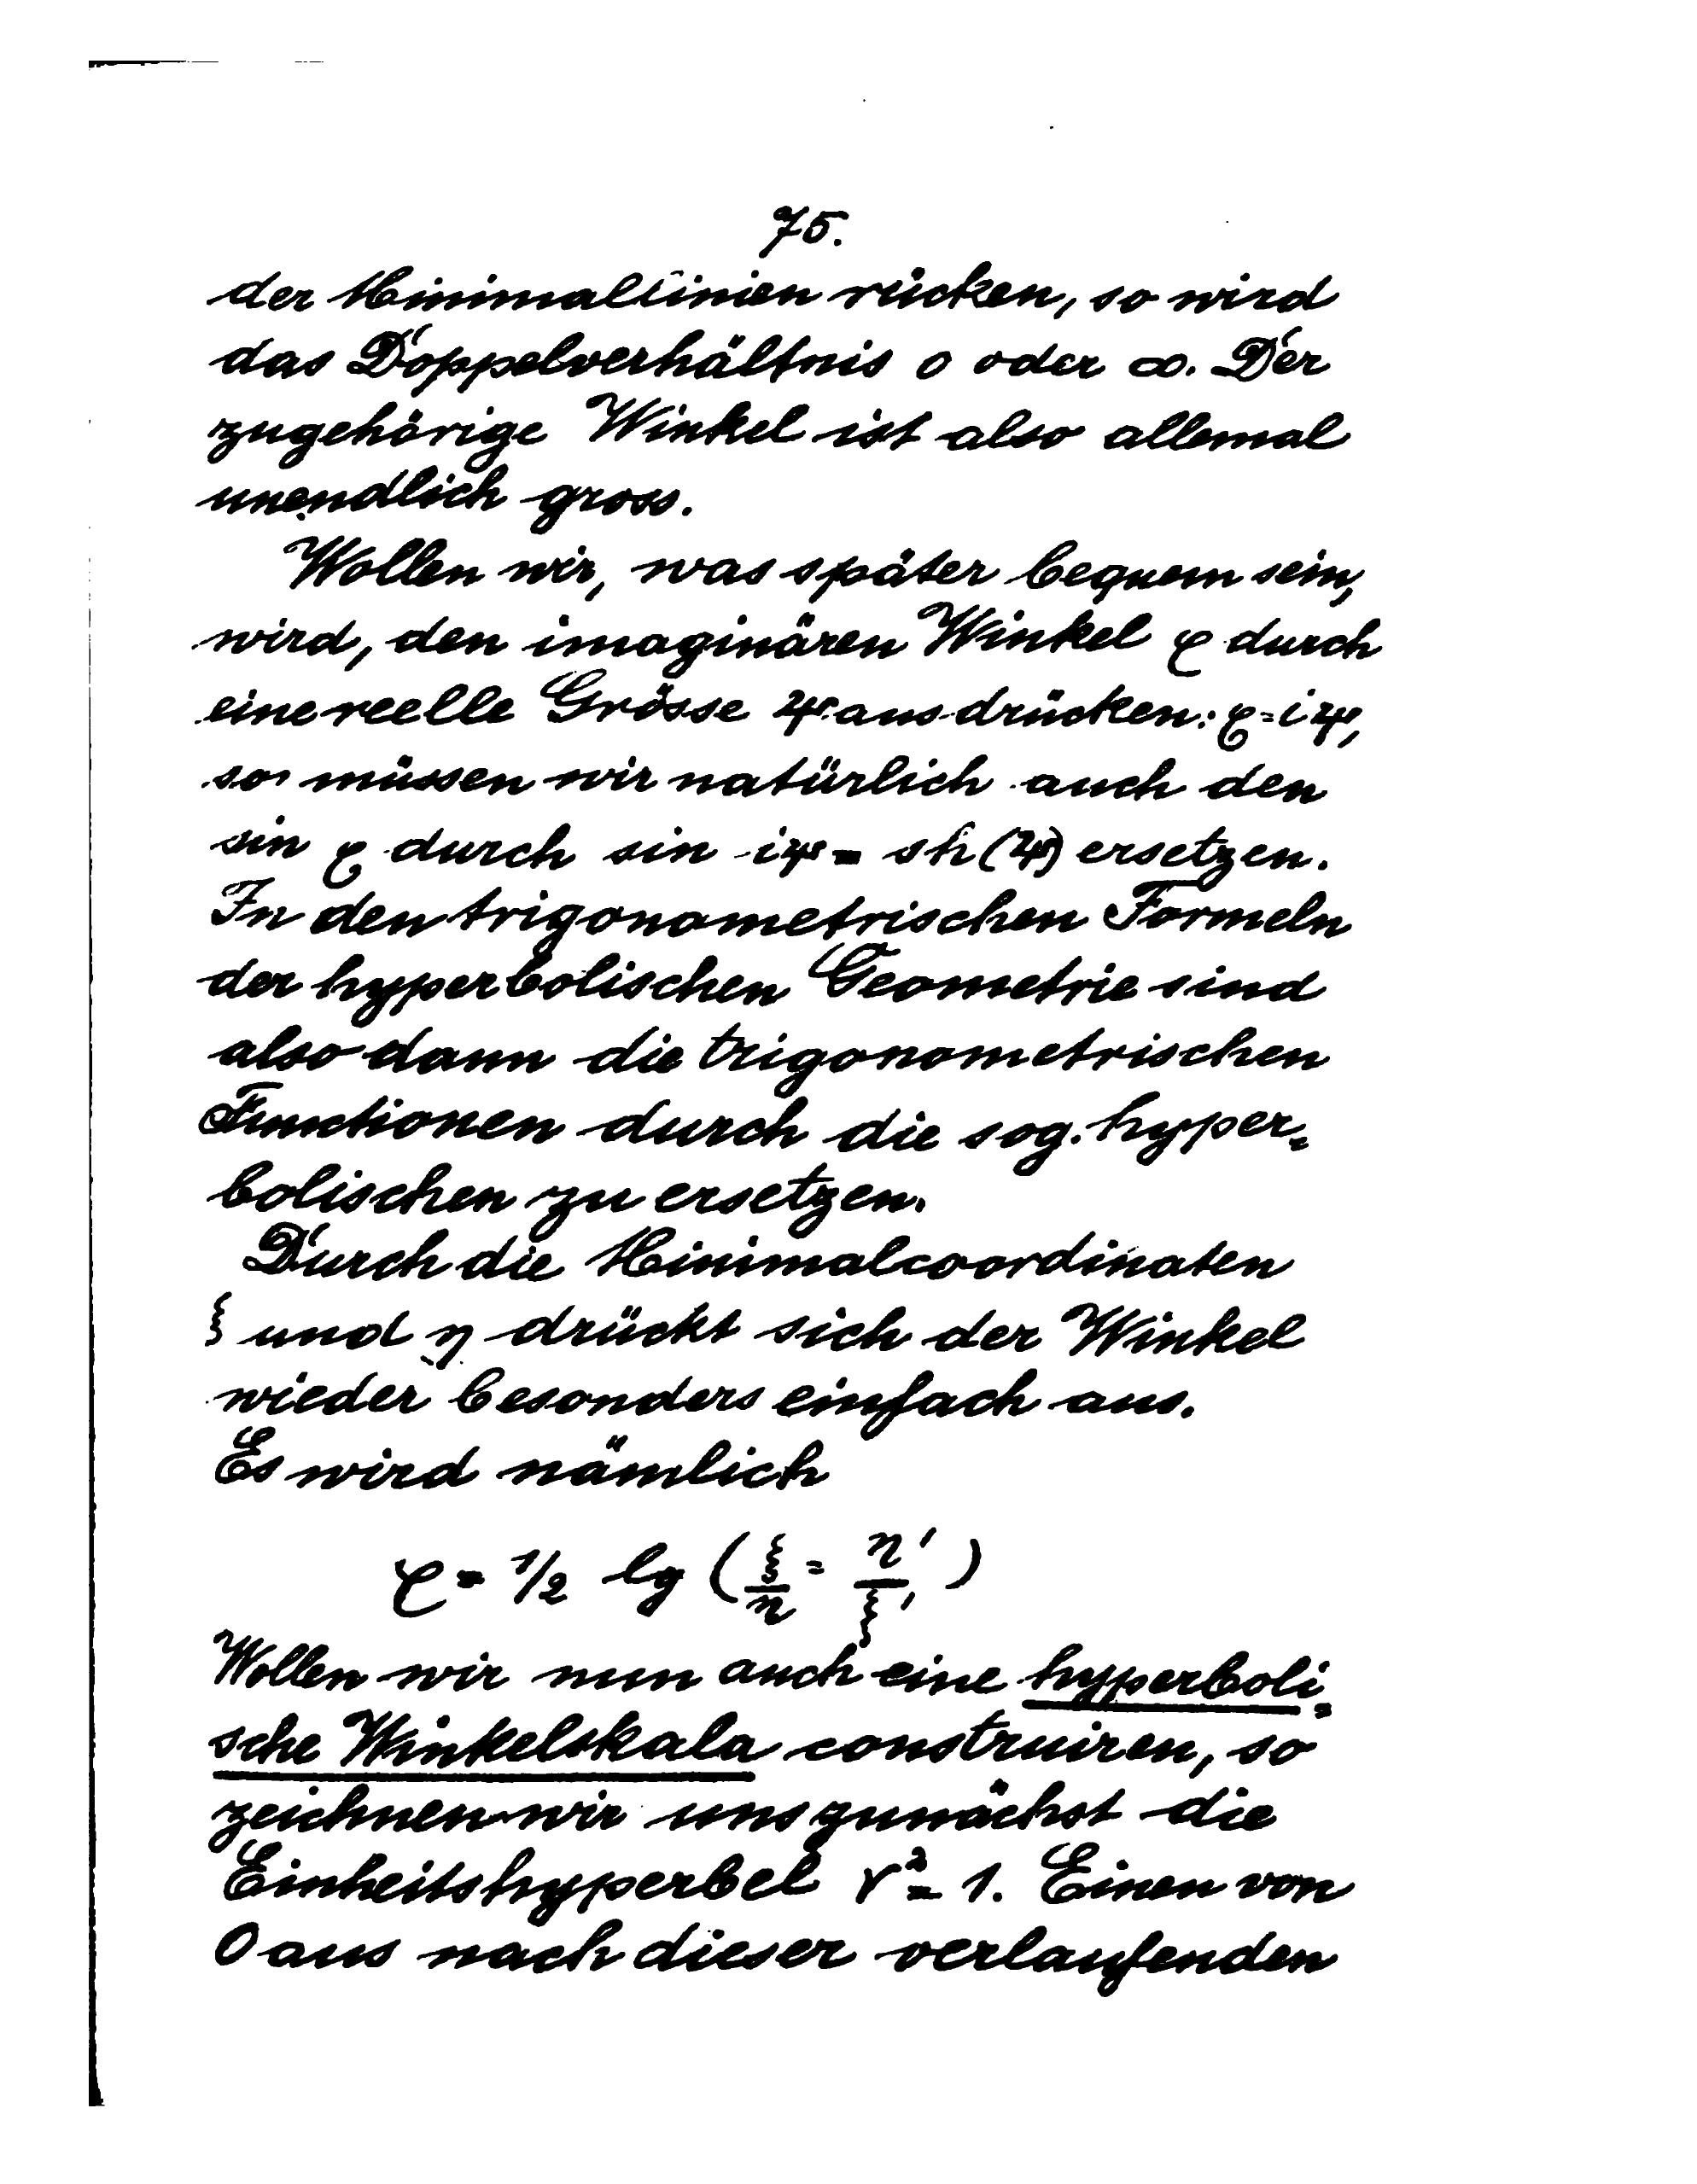 75.
der Minimallinien rücken, so wird
das Doppelverhältnis 0 oder ∞. Der
zugehörige Winkel ist also allemal
unendlich gross.
Wollen wir, was später bequem sein,
wird, den imaginären Winkel φ durch
eine reelle Grösse ψ ausdrücken: φ=iψ,
so müssen wir natürlich auch den
sin φ durch sin iψ = sh(ψ) ersetzen.
In den trigonometrischen Formeln
der hyperbolischen Geometrie sind
also dann die trigonometrischen
Functionen durch die sog. hyper=
bolischen zu ersetzen.
Durch die Minimalcoordinaten
ξ und η drückt sich der Winkel
wieder besonders einfach aus.
Es wird nämlich
φ = 1/2 lg (ξ/η = η'/ξ')
Wollen wir nun auch eine hyperboli=
sche Winkelskala construiren, so
zeichnen wir uns zunächst die
Einheitshyperbel r² = 1. Einen von
O aus nach dieser verlaufenden